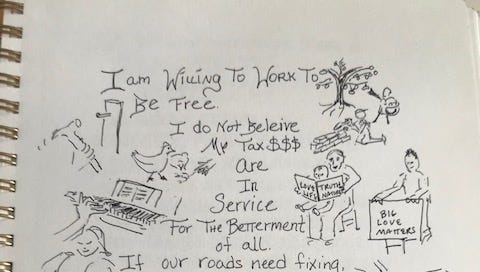 I am Willing To Work To
Be Free.
I do Not Beleive
My Tax $$$
Are
In
Service
For The Betterment
of all.
If our roads need fixing,
LOVE
LIFE
TRUTH
NATURE
BIG
LOVE
MATTERS